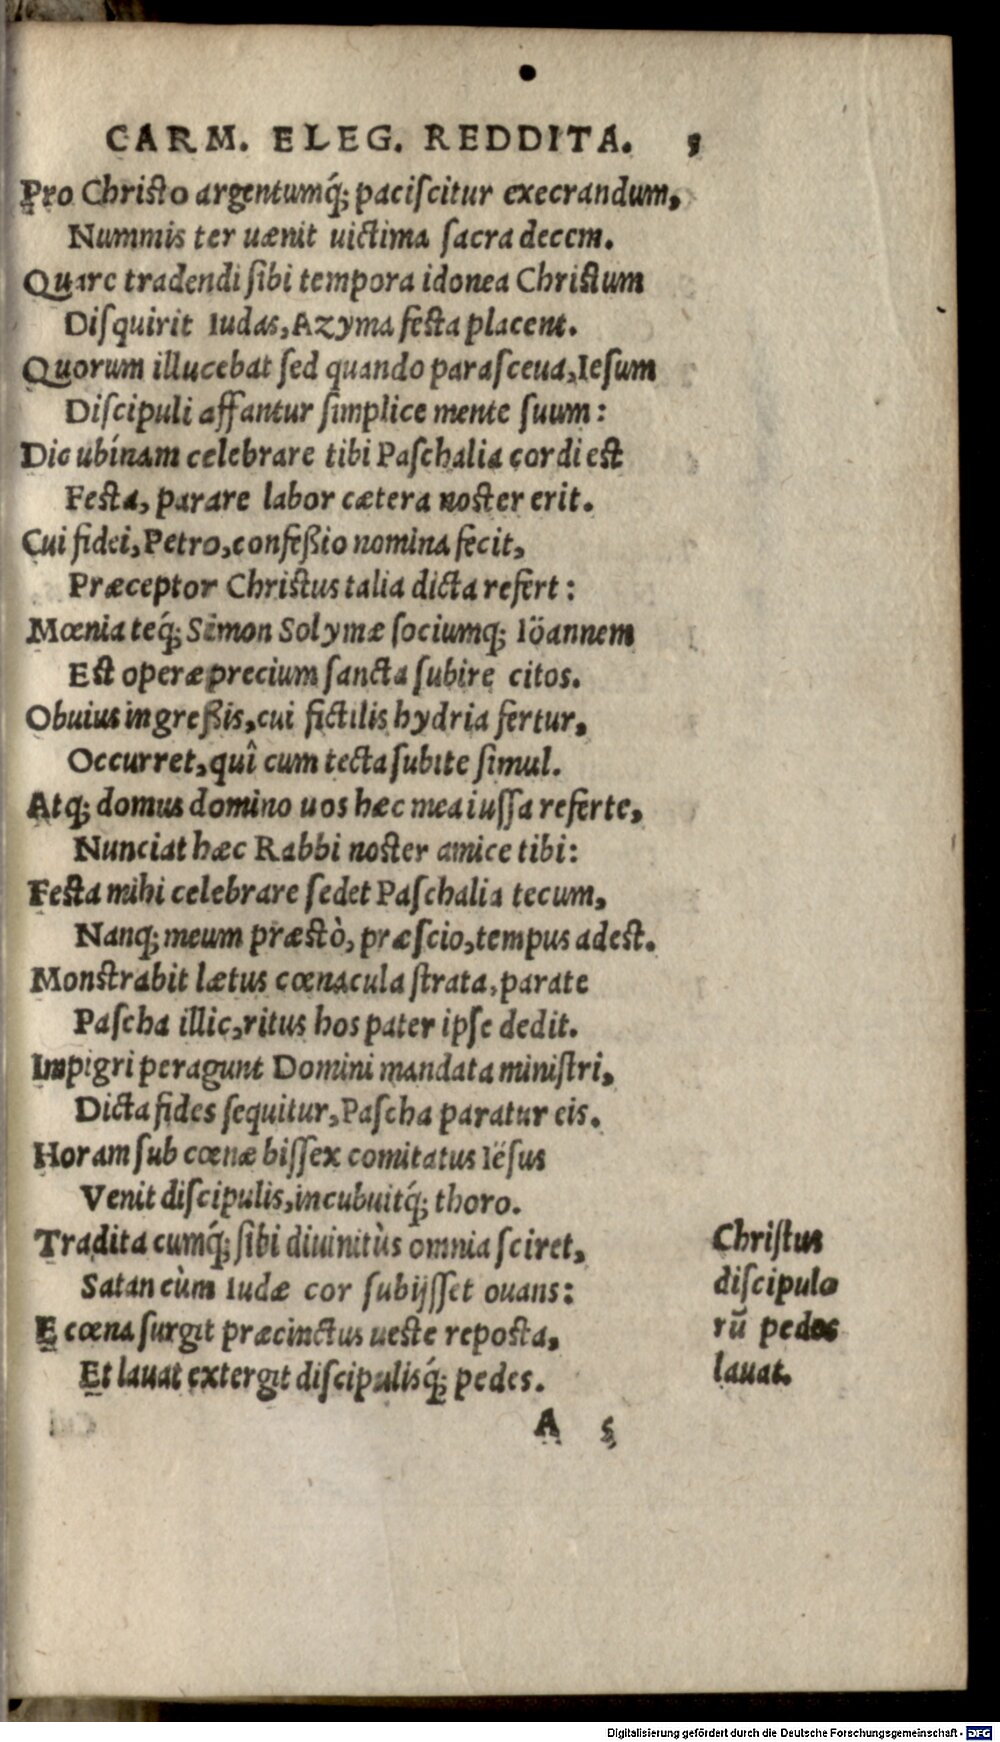 CARM. ELEG. REDDITA. 5
Pro Christo argentumq́; paciſcitur execrandum,
Nummis ter uænit uictima ſacra decem.
Quare tradendi ſibi tempora idonea Christum
Diſquirit Iudas, Azyma feſta placent.
Quorum illucebat ſed quando paraſceua, Ieſum
Diſcipuli affantur ſimplice mente ſuum:
Dic ubínam celebrare tibi Paſchalia cordi est
Feſta, parare labor cætera noster erit.
Cui fidei, Petro, confeßio nomina fecit,
Præceptor Christus talia dicta refert:
Mœnia teq́; Simon Solymæ ſociumq; Iöannem
Est operæprecium ſancta ſubire citos.
Obuius ingreßis, cui fictilis hydria fertur,
Occurret, quî cum tecta ſubite ſimul.
Atq; domus domino uos hæc mea iuſſa referte,
Nunciat hæc Rabbi noster amice tibi:
Feſta mihi celebrare ſedet Paſchalia tecum,
Nanq; meum præstò, præſcio, tempus adest.
Monstrabit lætus cœnacula ſtrata, parate
Paſcha illic, ritus hos pater ipſe dedit.
Impigri peragunt Domini mandata miniſtri,
Dicta fides ſequitur, Paſcha paratur eis.
Horam ſub cœnæ biſſex comitatus Iëſus
Venit diſcipulis, incubuitq́; thoro.
Tradita cumq́; ſibi diuinitùs omnia ſciret,
Satan cùm Iudæ cor ſubijſſet ouans:
E cœna ſurgit præcinctus ueste reposta,
Et lauat extergit diſcipulisq́; pedes.
Chriſtus
diſcipulo
rū pedes
lauat.
A 5
Digitalisierung gefördert durch die Deutsche Forschungsgemeinschaft - DFG